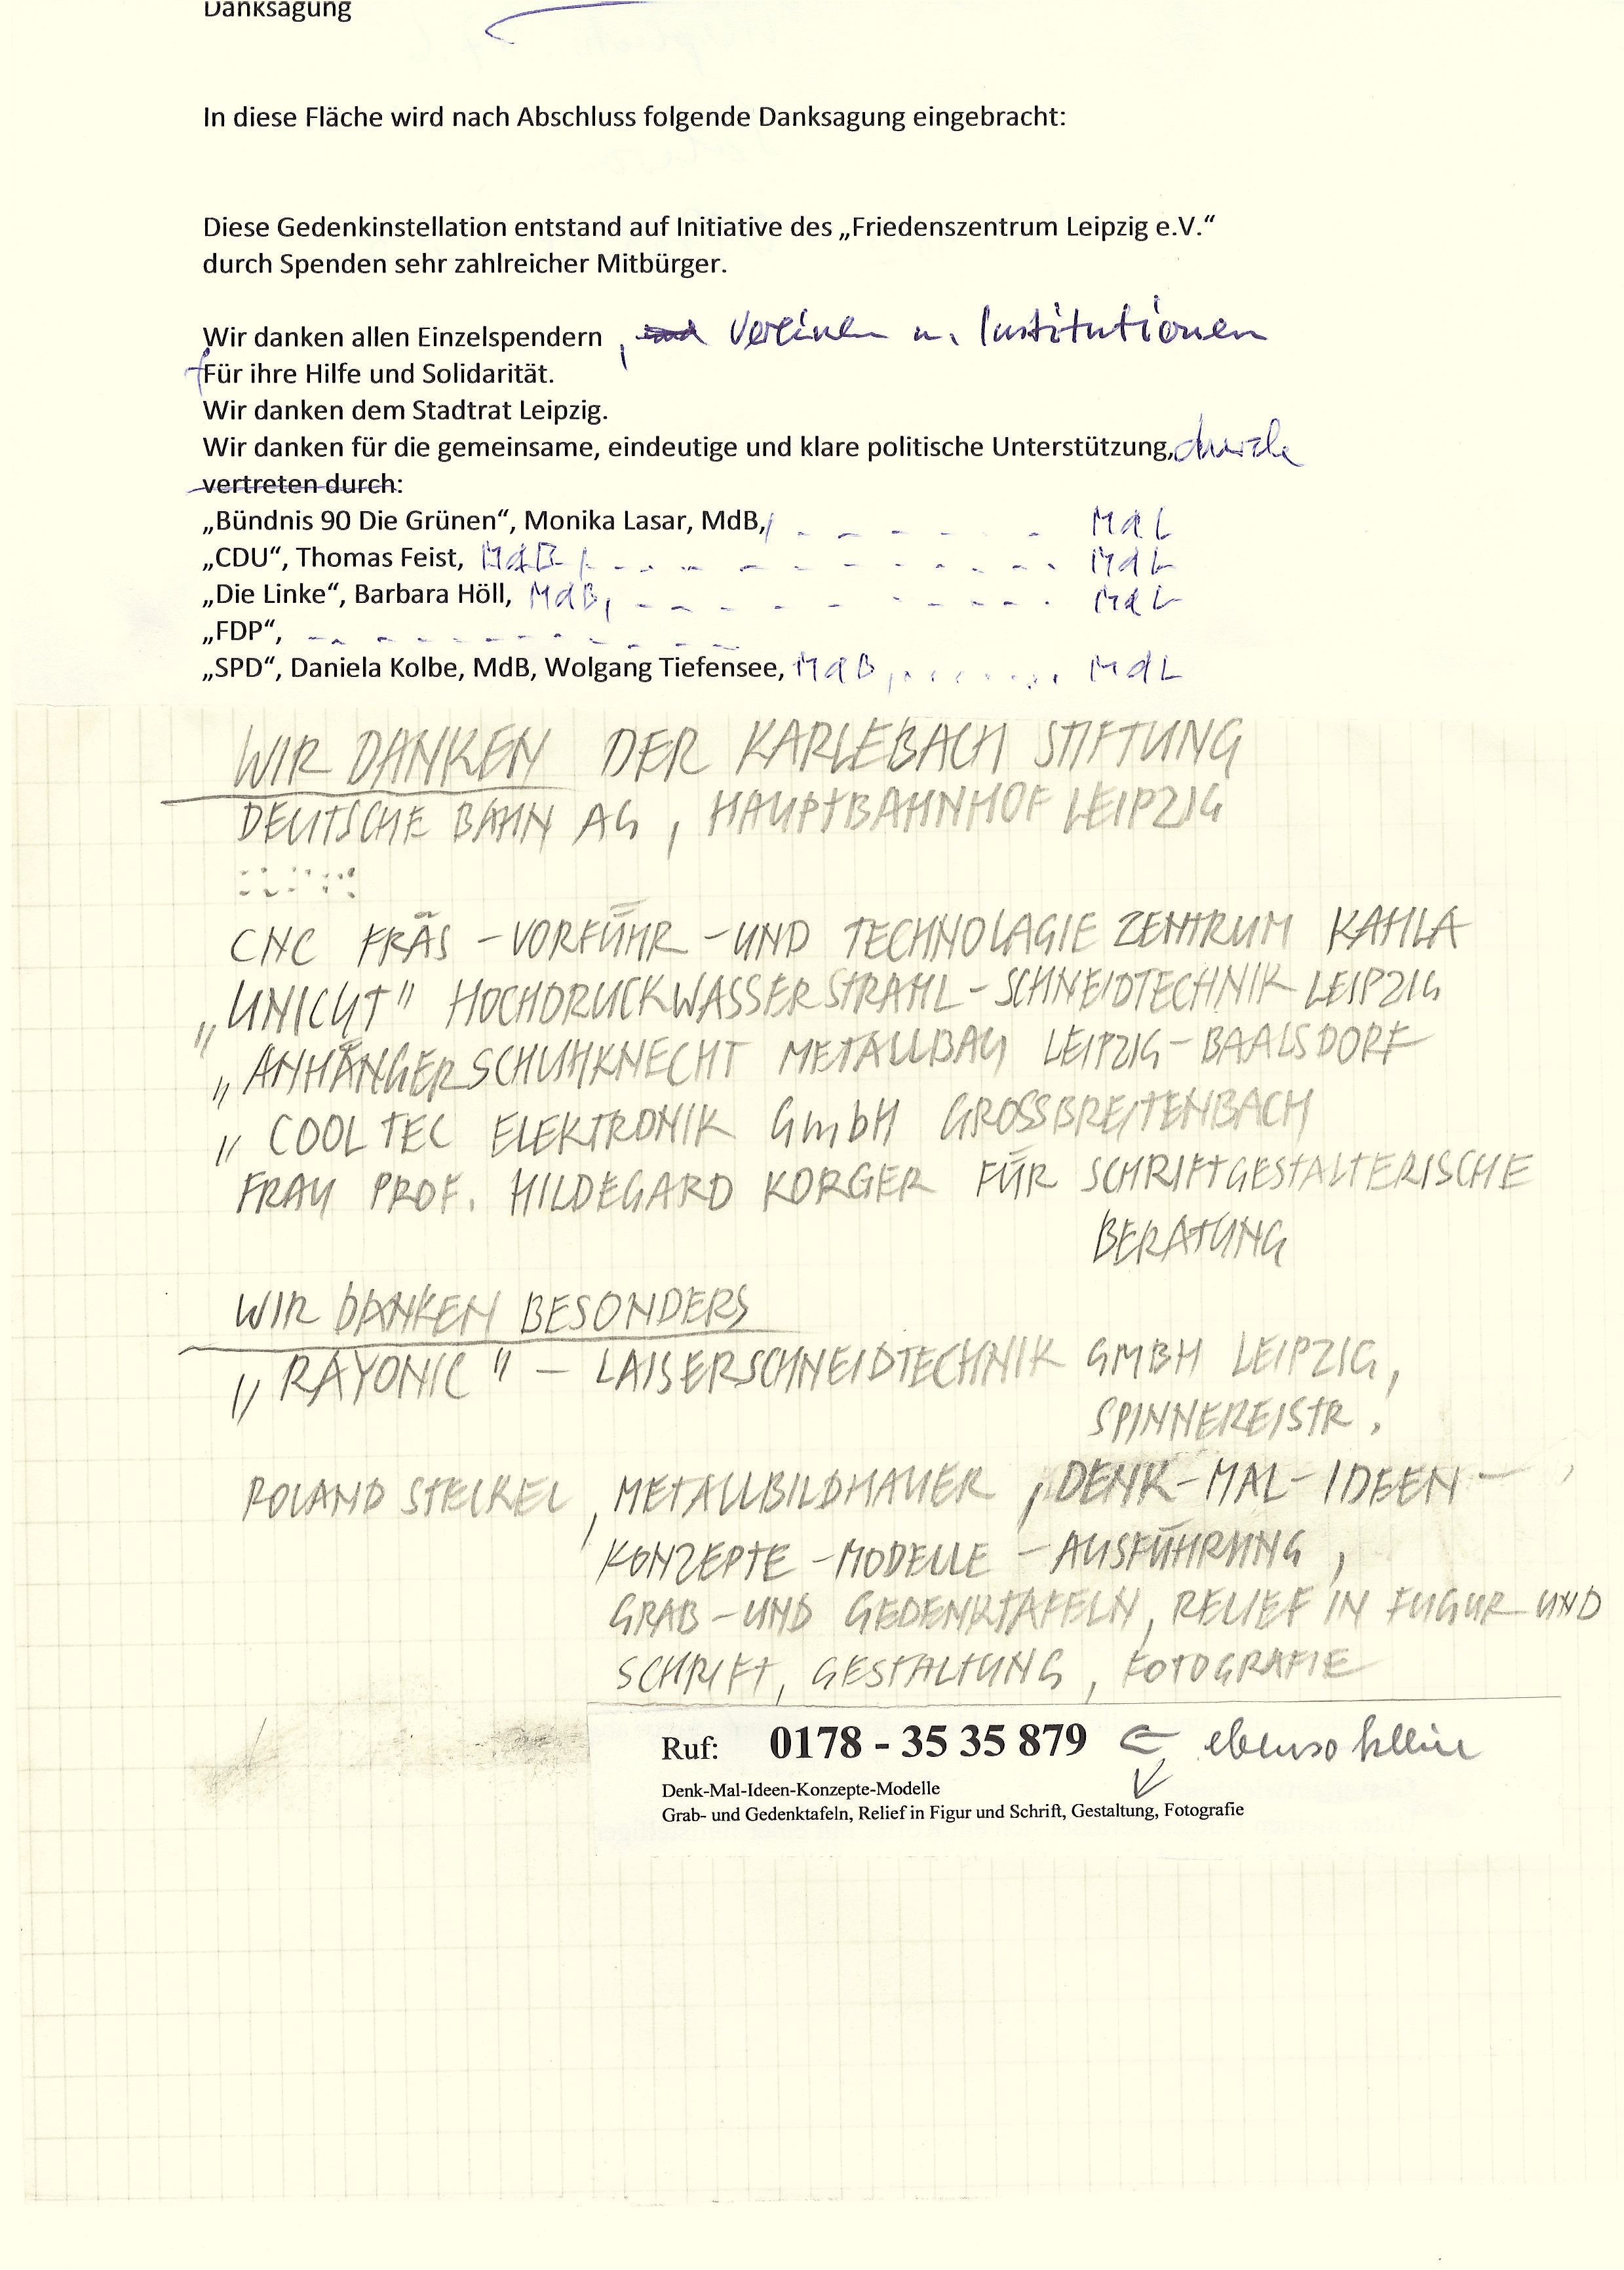 Danksagung
In diese Fläche wird nach Abschluss folgende Danksagung eingebracht:
Diese Gedenkinstellation entstand auf Initiative des „Friedenszentrum Leipzig e.V.“
durch Spenden sehr zahlreicher Mitbürger.
Wir danken allen Einzelspendern , und Vereinen u. Institutionen
Für ihre Hilfe und Solidarität.
Wir danken dem Stadtrat Leipzig.
Wir danken für die gemeinsame, eindeutige und klare politische Unterstützung, durch
vertreten durch:
„Bündnis 90 Die Grünen“, Monika Lasar, MdB, MdL
„CDU“, Thomas Feist, MdB, MdL
„Die Linke“, Barbara Höll, MdB, MdL
„FDP“,
„SPD“, Daniela Kolbe, MdB, Wolgang Tiefensee, MdB, ....... MdL
WIR DANKEN DER KARLEBACH STIFTUNG
DEUTSCHE BAHN AG, HAUPTBAHNHOF LEIPZIG
CNC FRÄS-VORFÜHR-UND TECHNOLAGIE ZENTRUM KAHLA
„UNICUT" HOCHDRUCKWASSERSTRAHL-SCHNEIDTECHNIK LEIPZIG
„ANHÄNGER SCHUHKNECHT METALLBAU LEIPZIG-BAALSDORF
„COOL TEC ELEKTRONIK GmbH GROSSBREITENBACH
FRAU PROF. HILDEGARD KORGER FÜR SCHRIFTGESTALTERISCHE
BERATUNG
WIR DANKEN BESONDERS
„RAYONIC" – LAISERSCHNEIDTECHNIK GMBH LEIPZIG,
SPINNEREISTR.
ROLAND STECKEL, METALLBILDHAUER, DENK-MAL-IDEEN-
KONZEPTE-MODELLE-AUSFÜHRUNG,
GRAB-UND GEDENKTAFELN, RELIEF IN FUGUR UND
SCHRIFT, GESTALTUNG, FOTOGRAFIE
Ruf: 0178 - 35 35 879 ebenso kleine
Denk-Mal-Ideen-Konzepte-Modelle
Grab- und Gedenktafeln, Relief in Figur und Schrift, Gestaltung, Fotografie